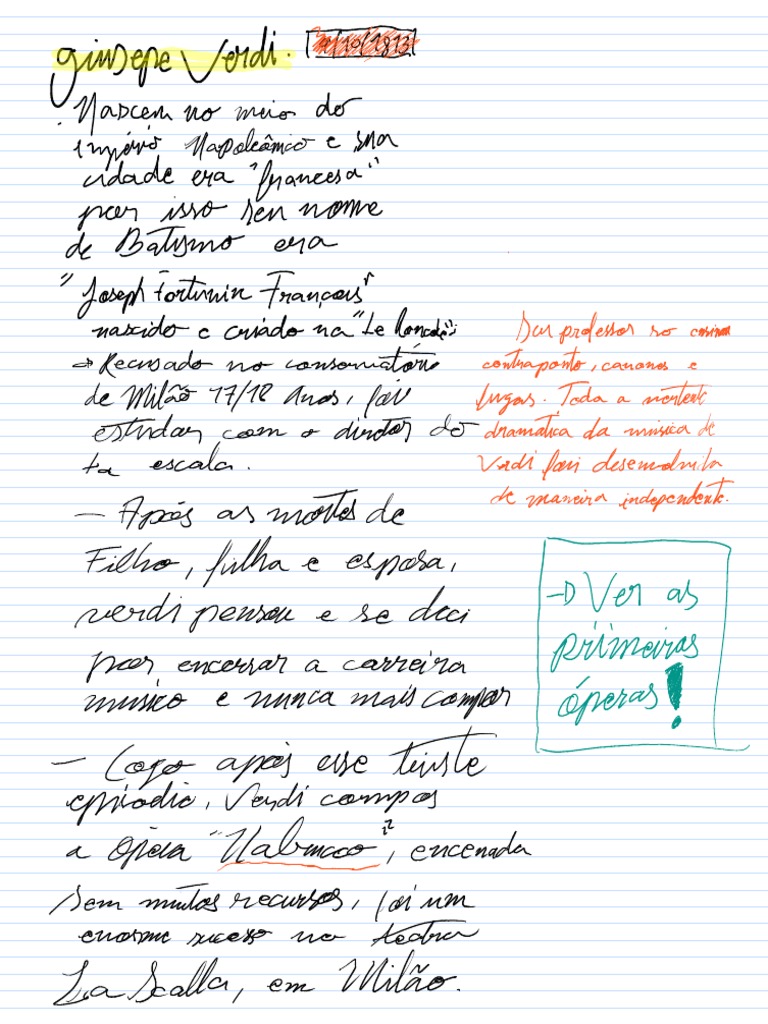 giusepe Verdi.
/10/1813
. Nasceu no meio do
império Napoleâmico e sua
cidade era "francesa"
por isso seu nome
de Batismo era
"Joseph Fortunin François"
nascido e criado na "Le Roncole";
→ Recusado no conservatório
de Milão 17/18 Anos, foi
estudar com o diretor do
La escala.
Seu professor so ensinou
contraponto, canones e
fugas. Toda a vertente
dramática da musica de
Verdi foi desenvolvida
de maneira independente.
– Após as mortes de
Filho, filha e esposa,
verdi pensou e se deci
por encerrar a carreira
musico e nunca mais compor
→ Ver as
primeiras
óperas!
– Logo após esse triste
episodio, Verdi compos
a ópera "Nabucco", encenada
sem muitos recursos, foi um
enorme sucesso no teatro
La Scalla, em Milão.